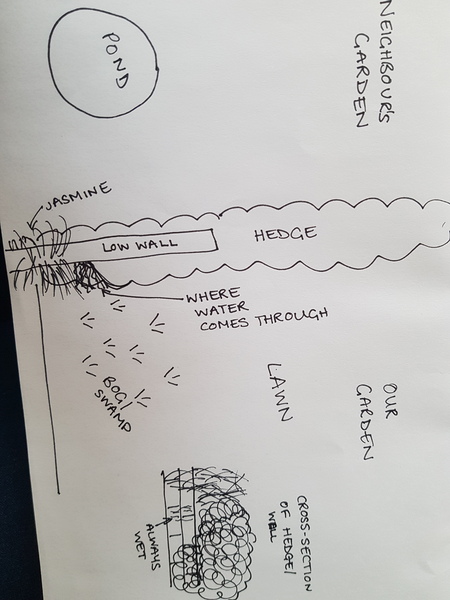 NEIGHBOUR'S
GARDEN
POND
JASMINE
LOW WALL
HEDGE
WHERE
WATER
COMES THROUGH
BOG/
SWAMP
LAWN
OUR
GARDEN
CROSS-SECTION
OF HEDGE/
WALL
ALWAYS
WET